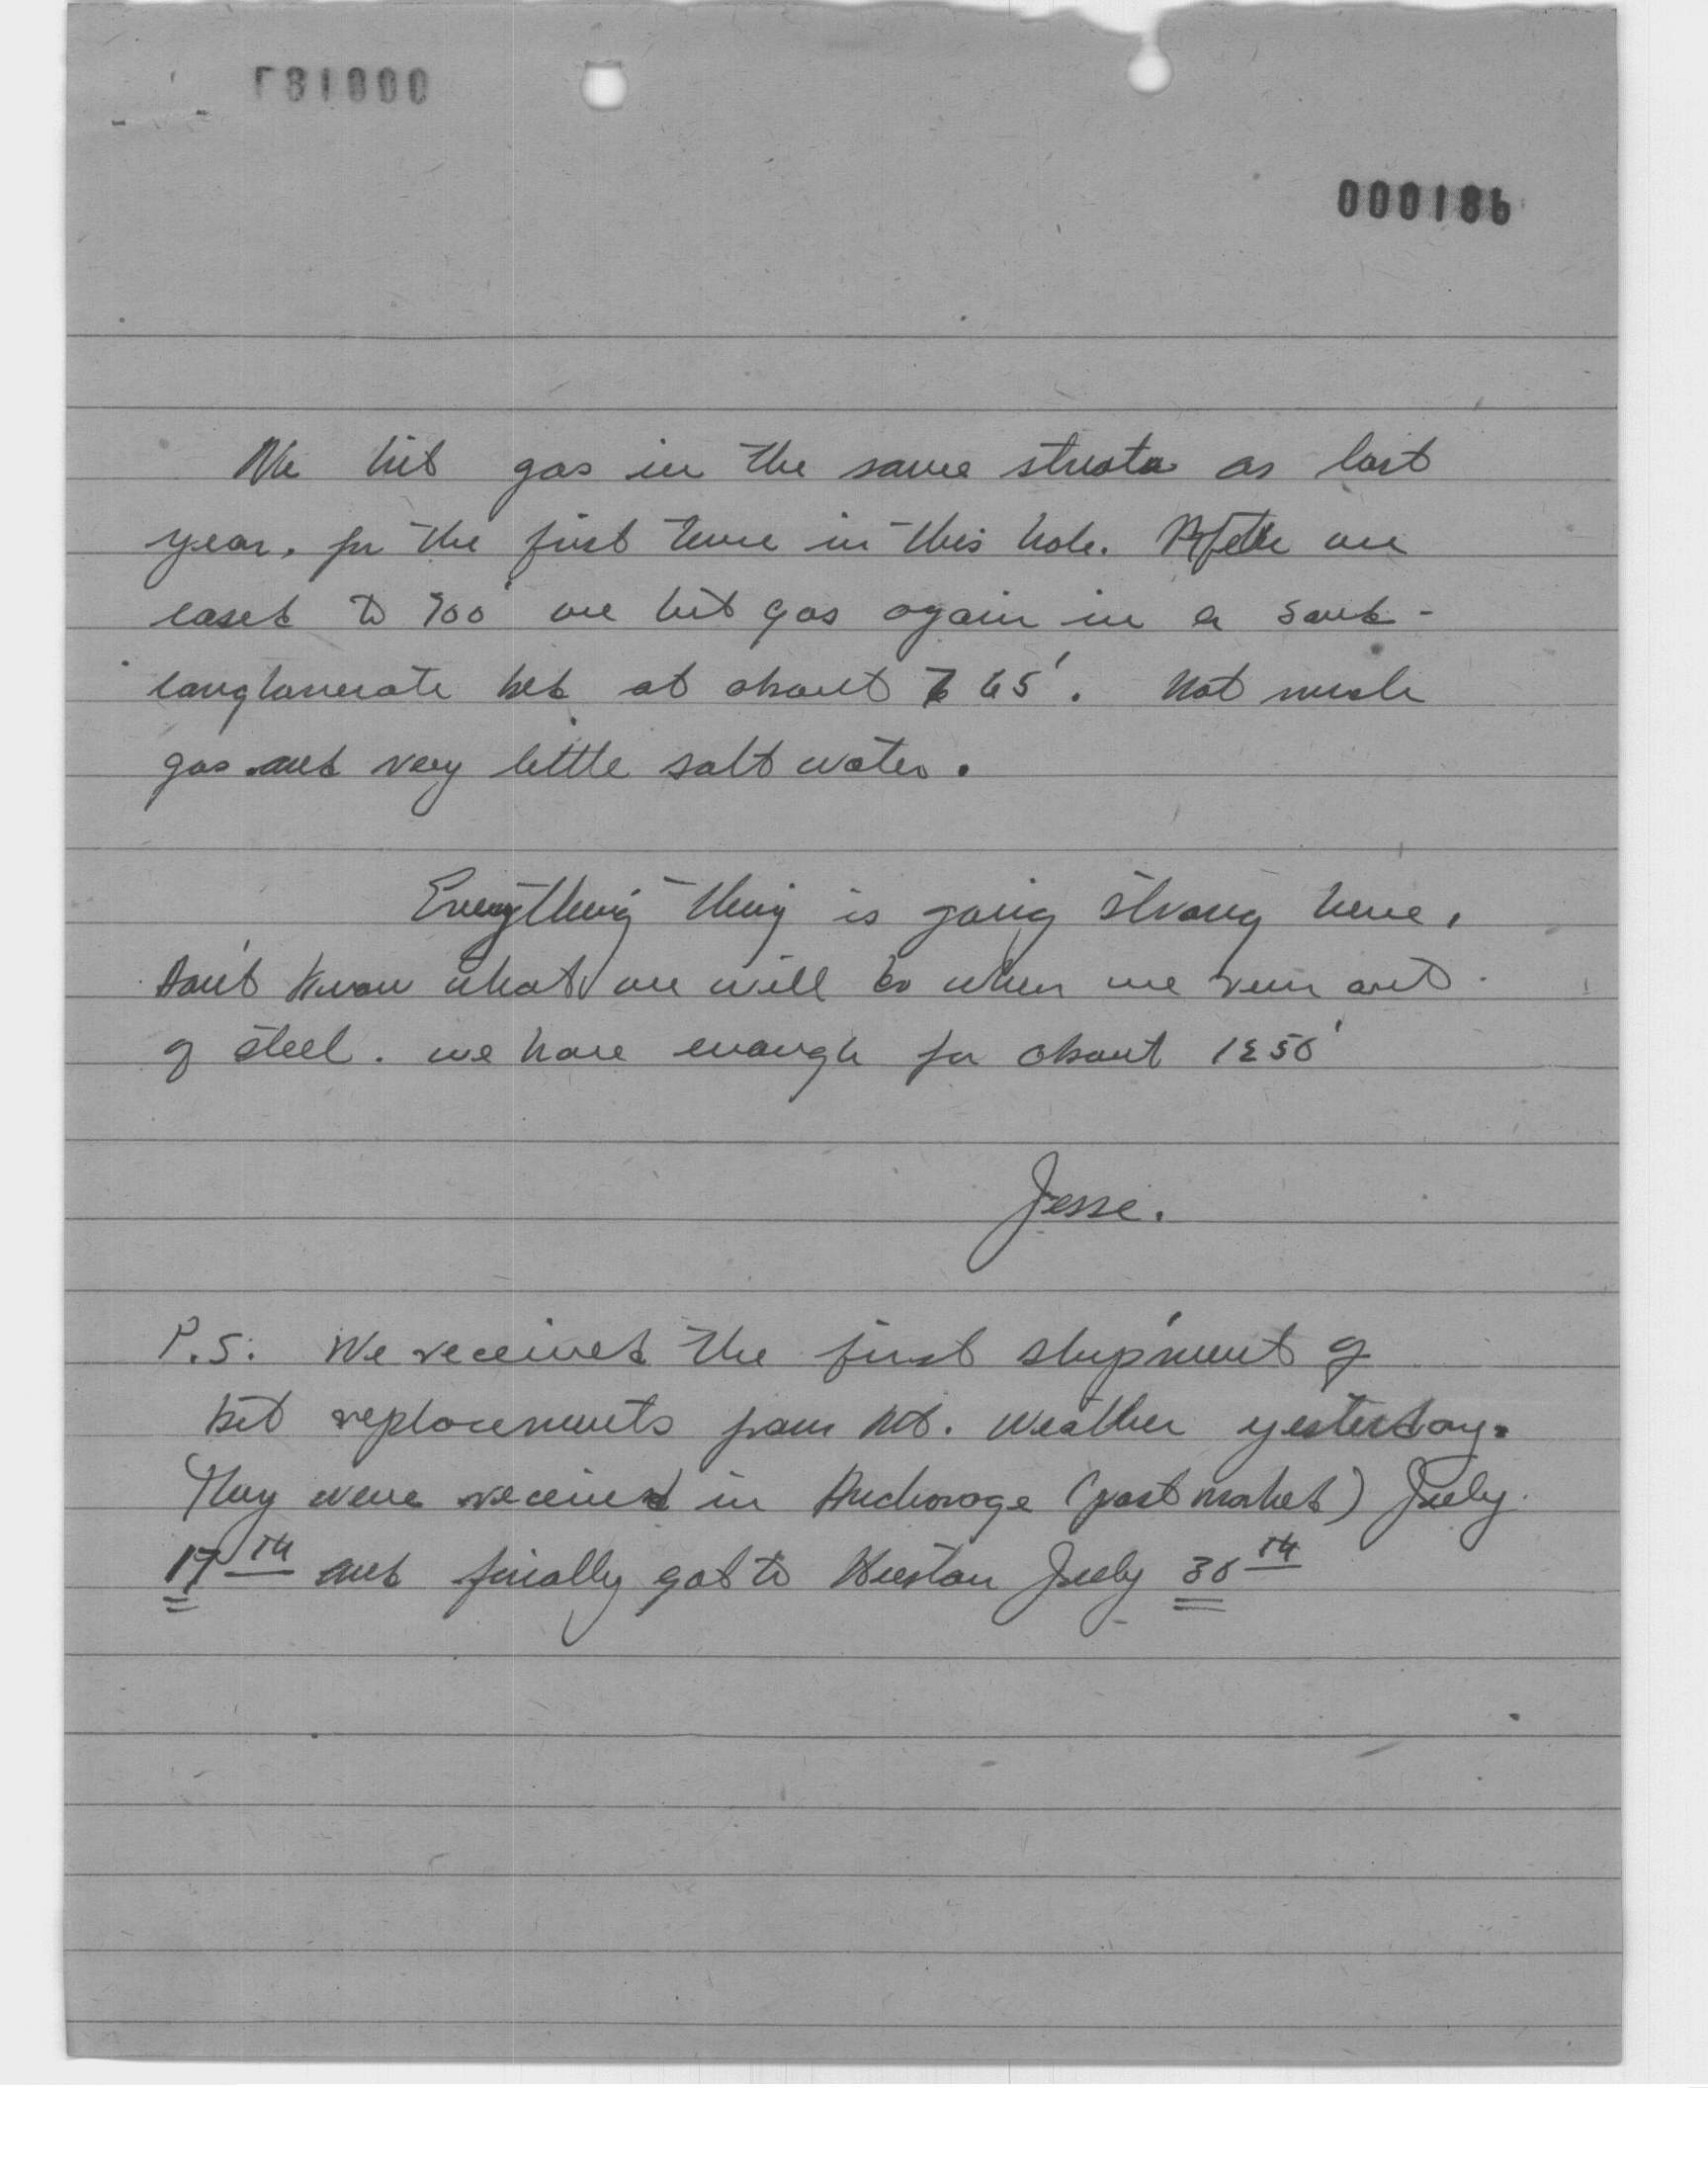 000187
000186
We hit gas in the same strata as last
year, for the first time in this hole. After we
cased to 700' we hit gas again in a sand-
conglomerate bed at about 765'. Not much
gas and very little salt water.
Everything thing is going strong here.
Don't know what we will do when we run out
of steel. we have enough for about 1250'
Jesse.
P.S: We received the first shipment of
bit replacements from Mt. Weather yesterday.
They were received in Anchorage (postmarked) July
17th and finally got to Houston July 30th